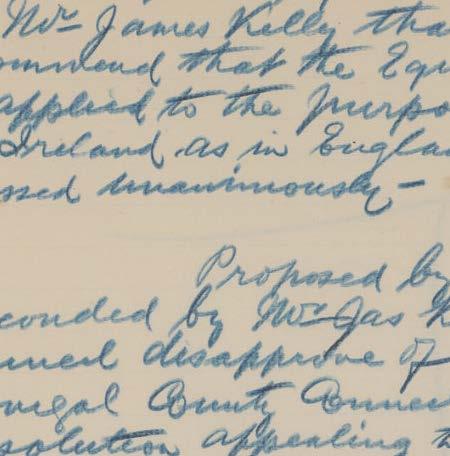 Mr James Kelly tha
ommend that the Equ
applied to the purpo
Ireland as in Engla
ssed unanimously—
Proposed by
conded by Mr Jas K
uncil disapprove of
onegal County Counci
solution appealing t